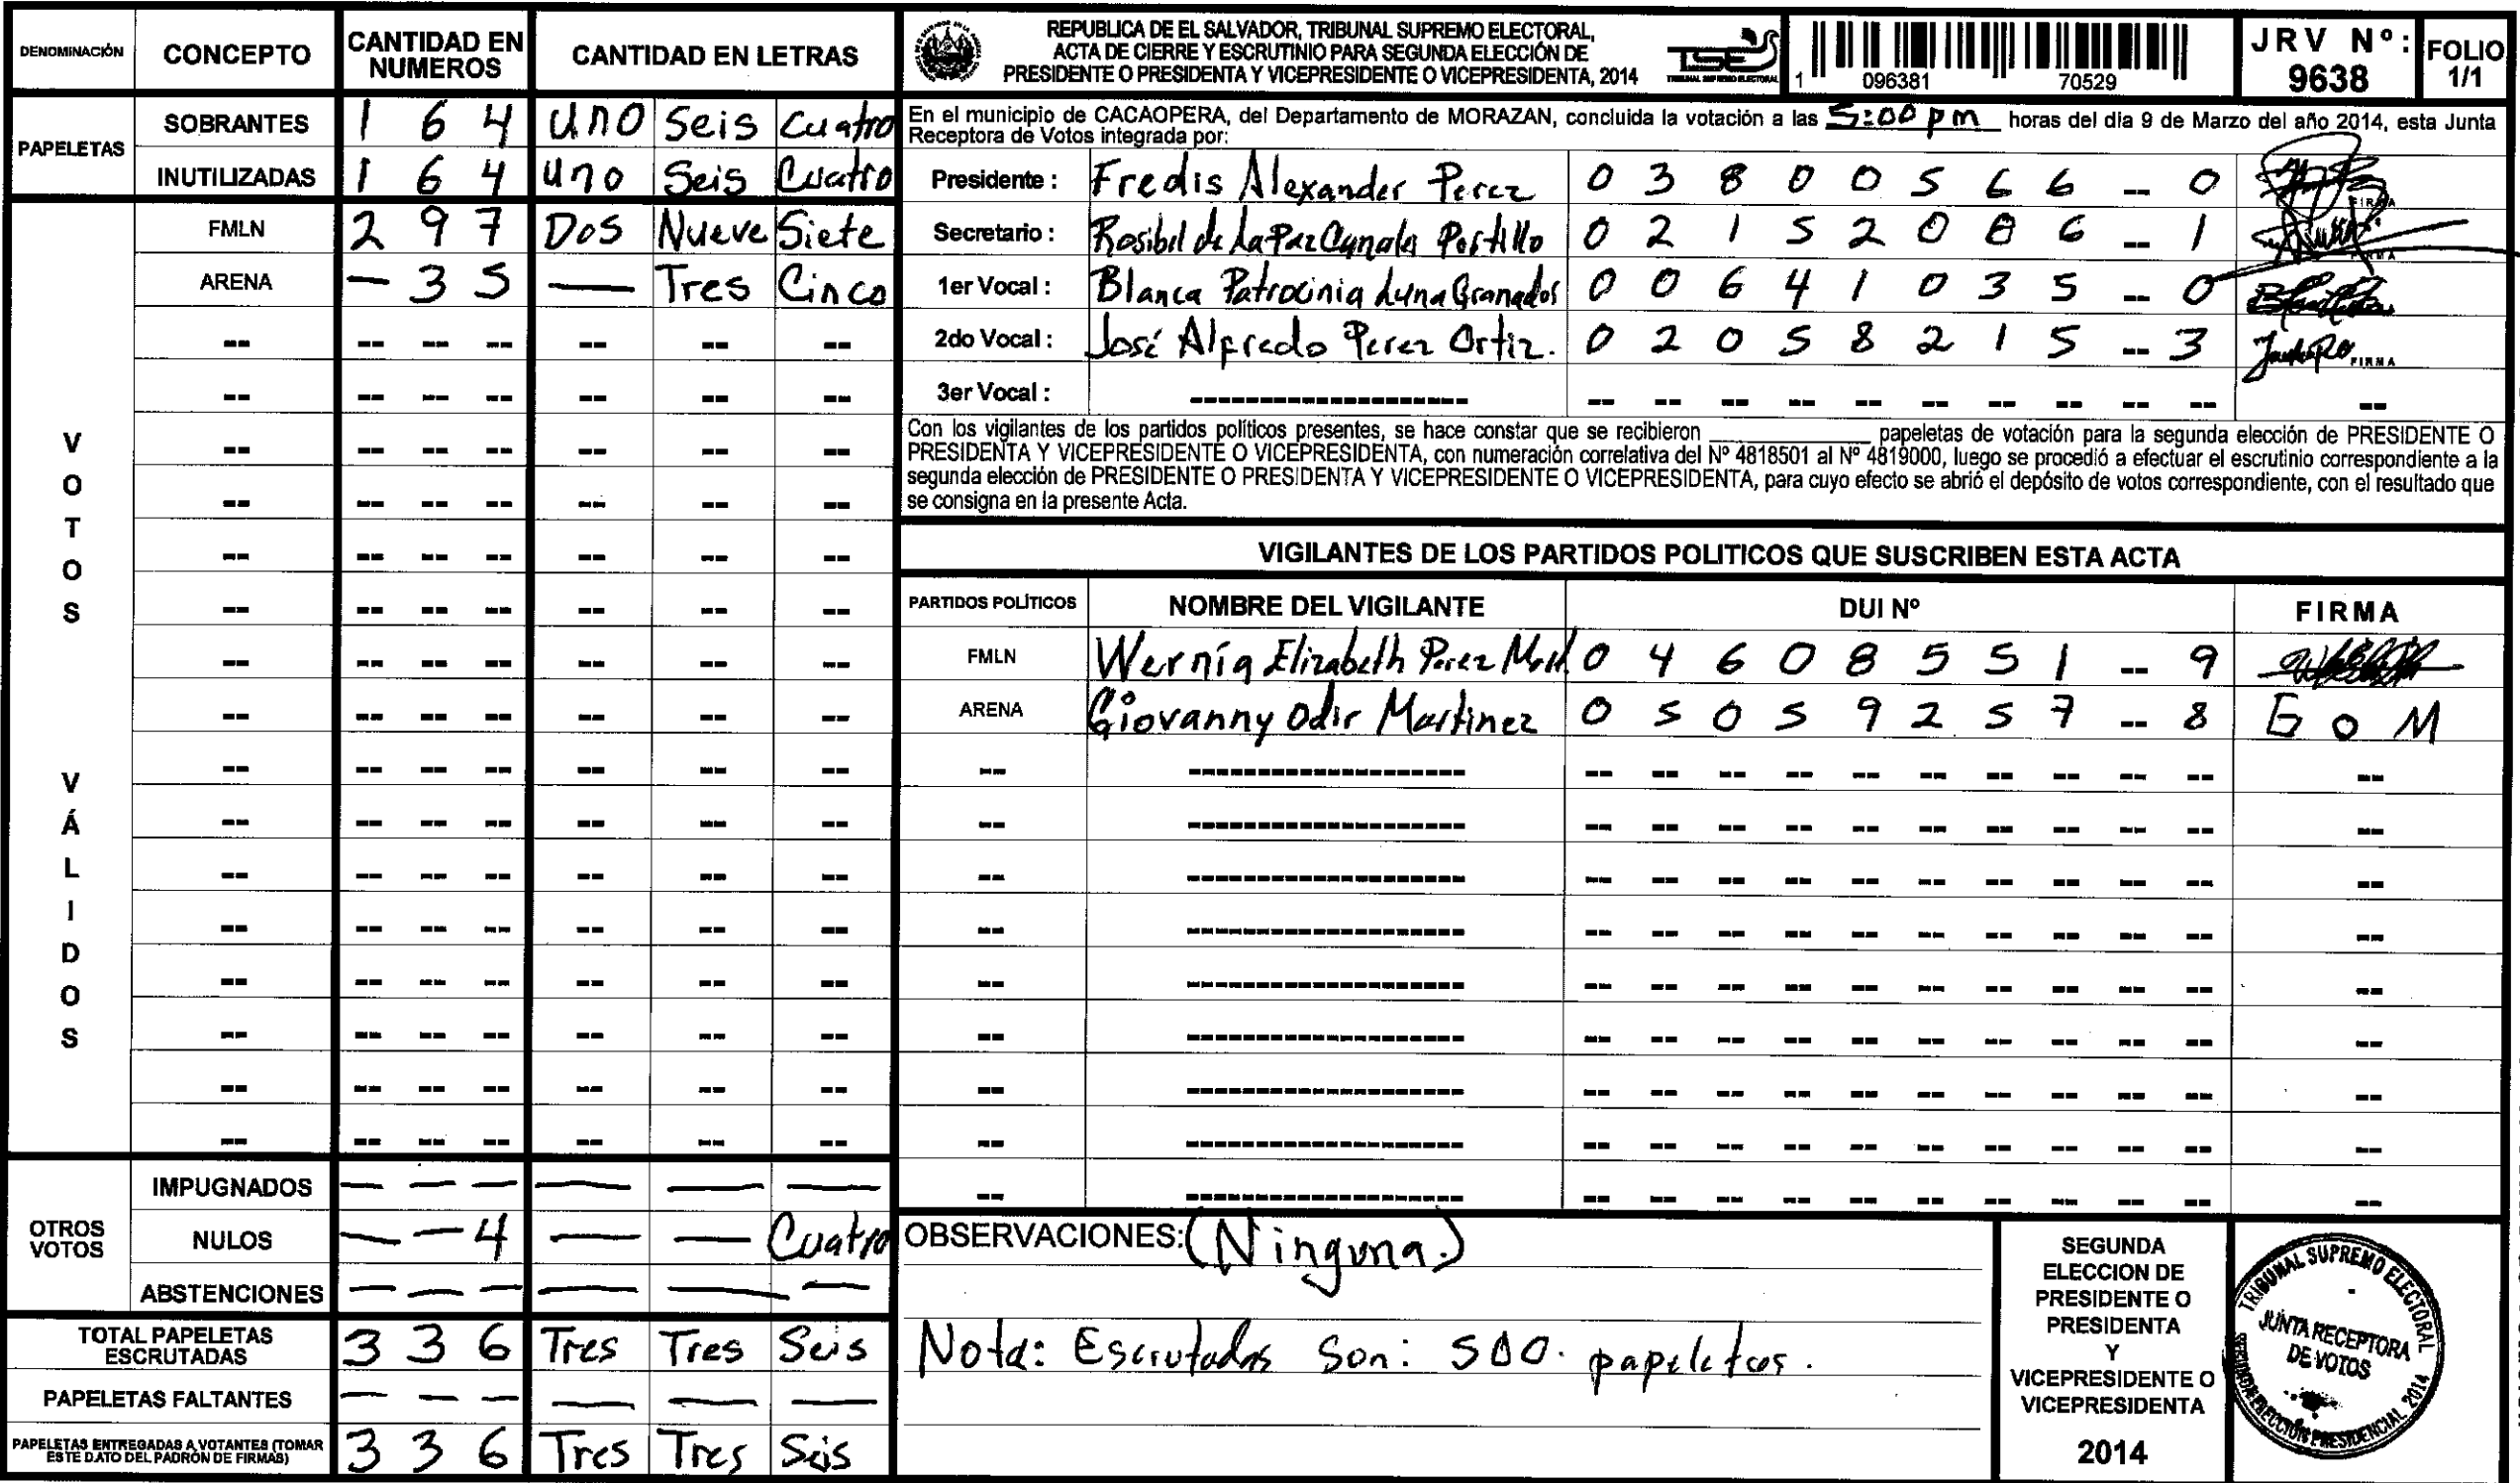 DENOMINACIÓN CONCEPTO CANTIDAD EN NUMEROS CANTIDAD EN LETRAS
PAPELETAS
SOBRANTES 1 6 4 uno Seis Cuatro
INUTILIZADAS 1 6 4 uno Seis Cuatro
VOTOS VÁLIDOS
FMLN 2 9 7 Dos Nueve Siete
ARENA — 3 5 — Tres Cinco
OTROS VOTOS
IMPUGNADOS — — — — — —
NULOS — — 4 — — Cuatro
ABSTENCIONES — — — — — —
TOTAL PAPELETAS ESCRUTADAS 3 3 6 Tres Tres Seis
PAPELETAS FALTANTES — — — — — —
PAPELETAS ENTREGADAS A VOTANTES (TOMAR ESTE DATO DEL PADRÓN DE FIRMAS) 3 3 6 Tres Tres Seis
REPUBLICA DE EL SALVADOR, TRIBUNAL SUPREMO ELECTORAL,
ACTA DE CIERRE Y ESCRUTINIO PARA SEGUNDA ELECCIÓN DE
PRESIDENTE O PRESIDENTA Y VICEPRESIDENTE O VICEPRESIDENTA, 2014
TSE
TRIBUNAL SUPREMO ELECTORAL
1 096381 70529
JRV Nº: 9638
FOLIO 1/1
En el municipio de CACAOPERA, del Departamento de MORAZAN, concluida la votación a las 5:00 pm horas del día 9 de Marzo del año 2014, esta Junta
Receptora de Votos integrada por:
Presidente : Fredis Alexander Perez 0 3 8 0 0 5 6 6 -- 0 FIRMA
Secretario : Rosibel de La Paz Portillo 0 2 1 5 2 0 8 6 -- 1 FIRMA
1er Vocal : Blanca Patrocinia Luna Granados 0 0 6 4 1 0 3 5 -- 0
2do Vocal : José Alfredo Perez Ortiz. 0 2 0 5 8 2 1 5 -- 3 FIRMA
3er Vocal :
Con los vigilantes de los partidos políticos presentes, se hace constar que se recibieron ____ papeletas de votación para la segunda elección de PRESIDENTE O
PRESIDENTA Y VICEPRESIDENTE O VICEPRESIDENTA, con numeración correlativa del Nº 4818501 al Nº 4819000, luego se procedió a efectuar el escrutinio correspondiente a la
segunda elección de PRESIDENTE O PRESIDENTA Y VICEPRESIDENTE O VICEPRESIDENTA, para cuyo efecto se abrió el depósito de votos correspondiente, con el resultado que
se consigna en la presente Acta.
VIGILANTES DE LOS PARTIDOS POLITICOS QUE SUSCRIBEN ESTA ACTA
PARTIDOS POLÍTICOS NOMBRE DEL VIGILANTE DUI Nº FIRMA
FMLN Wernía Elizabeth Perez 0 4 6 0 8 5 5 1 -- 9
ARENA Giovanny Odir Martinez 0 5 0 5 9 2 5 7 -- 8 G O M
OBSERVACIONES: (Ninguna.)
Nota: Escrutadas Son: 500. papeletas.
SEGUNDA
ELECCION DE
PRESIDENTE O
PRESIDENTA
Y
VICEPRESIDENTE O
VICEPRESIDENTA
2014
TRIBUNAL SUPREMO ELECTORAL
JUNTA RECEPTORA
DE VOTOS
SEGUNDA ELECCIÓN PRESIDENCIAL 2014